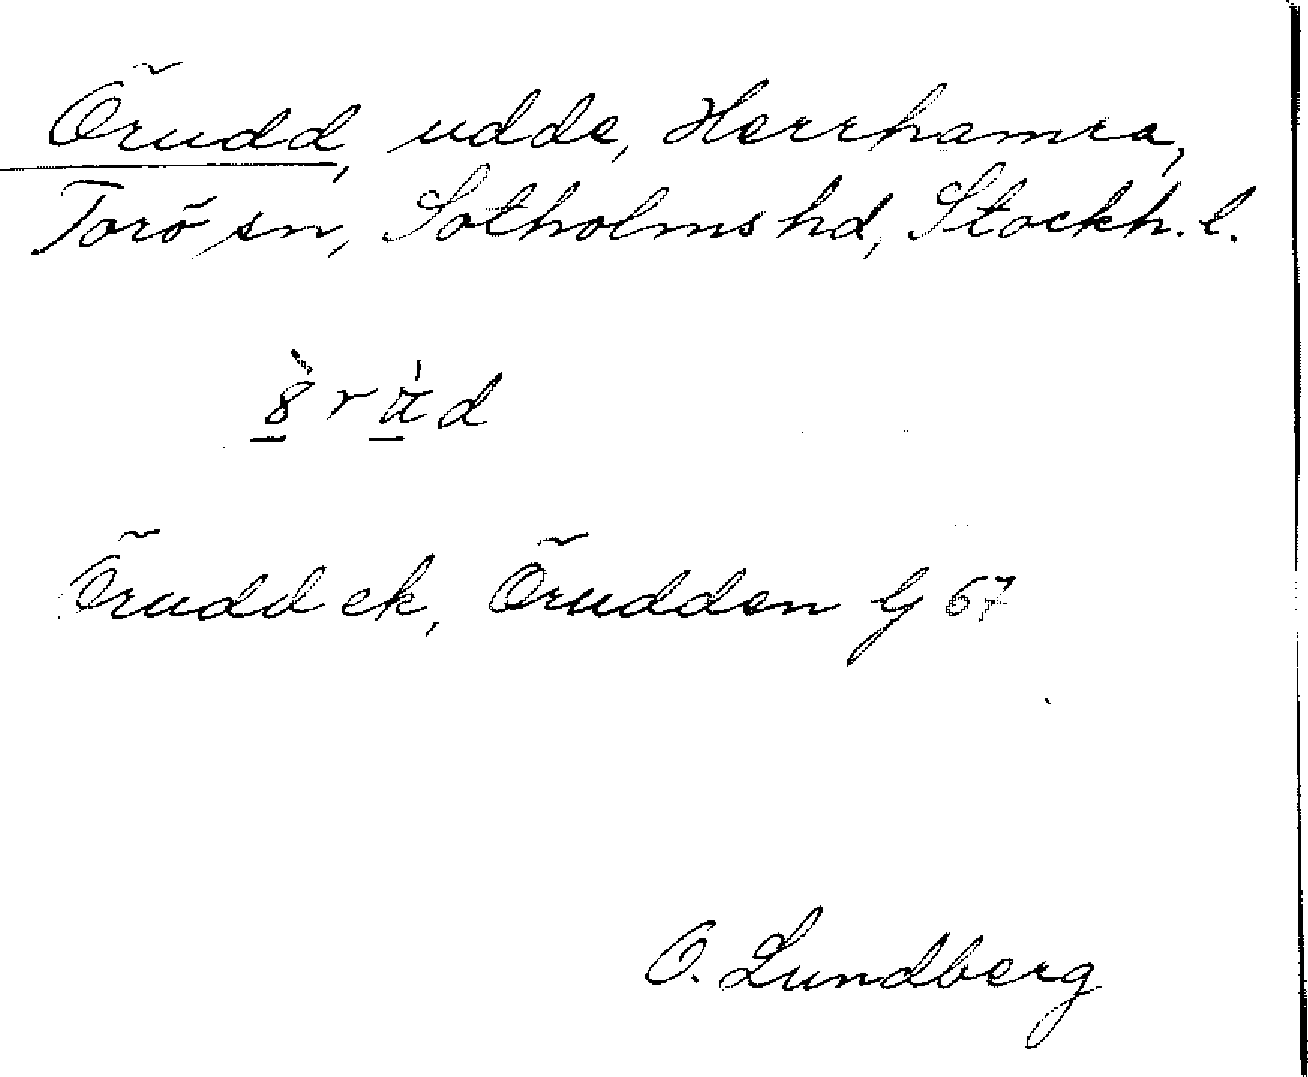 Örudd, udde, Herrhamra,
Torö sn, Sotholms hd, Stockh. l.
Örudd ek, Örudden G 67
O. Lundberg